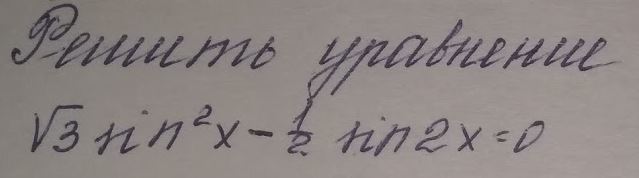 Решить уравнение
√3 sin²x - ½ sin2x = 0